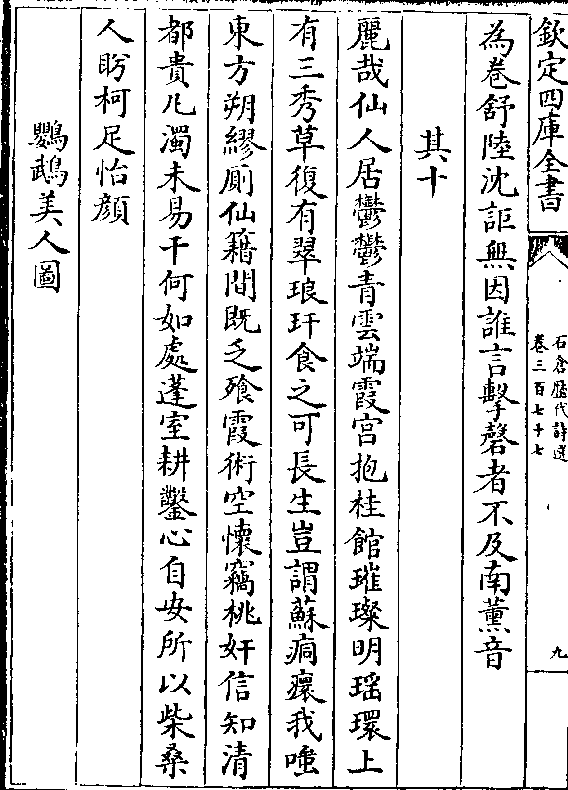 欽定四庫全書
石倉歷代詩選
卷三百七十七
九
為卷舒陸沈詎無因誰言擊磬者不及南薰音
其十
麗哉仙人居鬱鬱青雲端霞宫抱桂館璀璨明瑶環上
有三秀草復有翠琅玕食之可長生豈謂蘇痌瘝我嗤
東方朔繆厠仙籍間既乏飱霞術空懷竊桃奸信知清
都貴凡濁未易干何如處蓬室耕鑿心自安所以柴桑
人眄柯足怡顔
鸚鵡美人圖